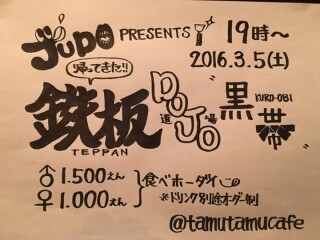 JUDO PRESENTS 19時〜
2016.3.5(土)
帰ってきた!!
鉄板 DOJO 道場 "黒帯"
TEPPAN KURO-OBI
♂ 1.500えん
♀ 1.000えん
食べホーダイ
※ドリンク別途オーダー制
@tamutamucafe